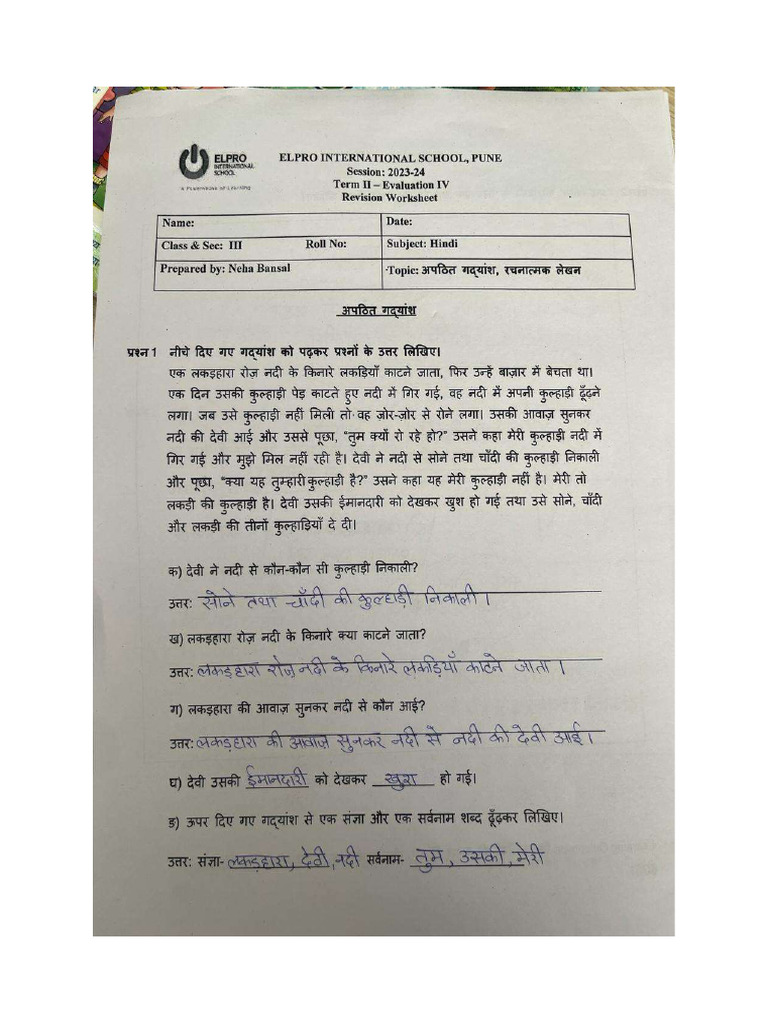 ELPRO
INTERNATIONAL
SCHOOL
A Powerhouse of Learning
ELPRO INTERNATIONAL SCHOOL, PUNE
Session: 2023-24
Term II – Evaluation IV
Revision Worksheet
Name: Date:
Class & Sec: III Roll No: Subject: Hindi
Prepared by: Neha Bansal Topic: अपठित गद्यांश, रचनात्मक लेखन
अपठित गद्यांश
प्रश्न 1 नीचे दिए गए गद्यांश को पढ़कर प्रश्नों के उत्तर लिखिए।
एक लकड़हारा रोज़ नदी के किनारे लकड़ियाँ काटने जाता, फिर उन्हें बाज़ार में बेचता था।
एक दिन उसकी कुल्हाड़ी पेड़ काटते हुए नदी में गिर गई, वह नदी में अपनी कुल्हाड़ी ढूँढ़ने
लगा। जब उसे कुल्हाड़ी नहीं मिली तो वह ज़ोर-ज़ोर से रोने लगा। उसकी आवाज़ सुनकर
नदी की देवी आई और उससे पूछा, “तुम क्यों रो रहे हो?” उसने कहा मेरी कुल्हाड़ी नदी में
गिर गई और मुझे मिल नहीं रही है। देवी ने नदी से सोने तथा चाँदी की कुल्हाड़ी निकाली
और पूछा, “क्या यह तुम्हारी कुल्हाड़ी है?” उसने कहा यह मेरी कुल्हाड़ी नहीं है। मेरी तो
लकड़ी की कुल्हाड़ी है। देवी उसकी ईमानदारी को देखकर खुश हो गई तथा उसे सोने, चाँदी
और लकड़ी की तीनों कुल्हाड़ियाँ दे दी।
क) देवी ने नदी से कौन-कौन सी कुल्हाड़ी निकाली?
उत्तर: सोने तथा चाँदी की कुल्हाड़ी निकाली।
ख) लकड़हारा रोज़ नदी के किनारे क्या काटने जाता?
उत्तर: लकड़हारा रोज़ नदी के किनारे लकड़ियाँ काटने जाता।
ग) लकड़हारा की आवाज़ सुनकर नदी से कौन आई?
उत्तर: लकड़हारा की आवाज़ सुनकर नदी से नदी की देवी आई।
घ) देवी उसकी ईमानदारी को देखकर खुश हो गई।
ङ) ऊपर दिए गए गद्यांश से एक संज्ञा और एक सर्वनाम शब्द ढूँढ़कर लिखिए।
उत्तर: संज्ञा- लकड़हारा, देवी, नदी सर्वनाम- तुम, उसकी, मेरी